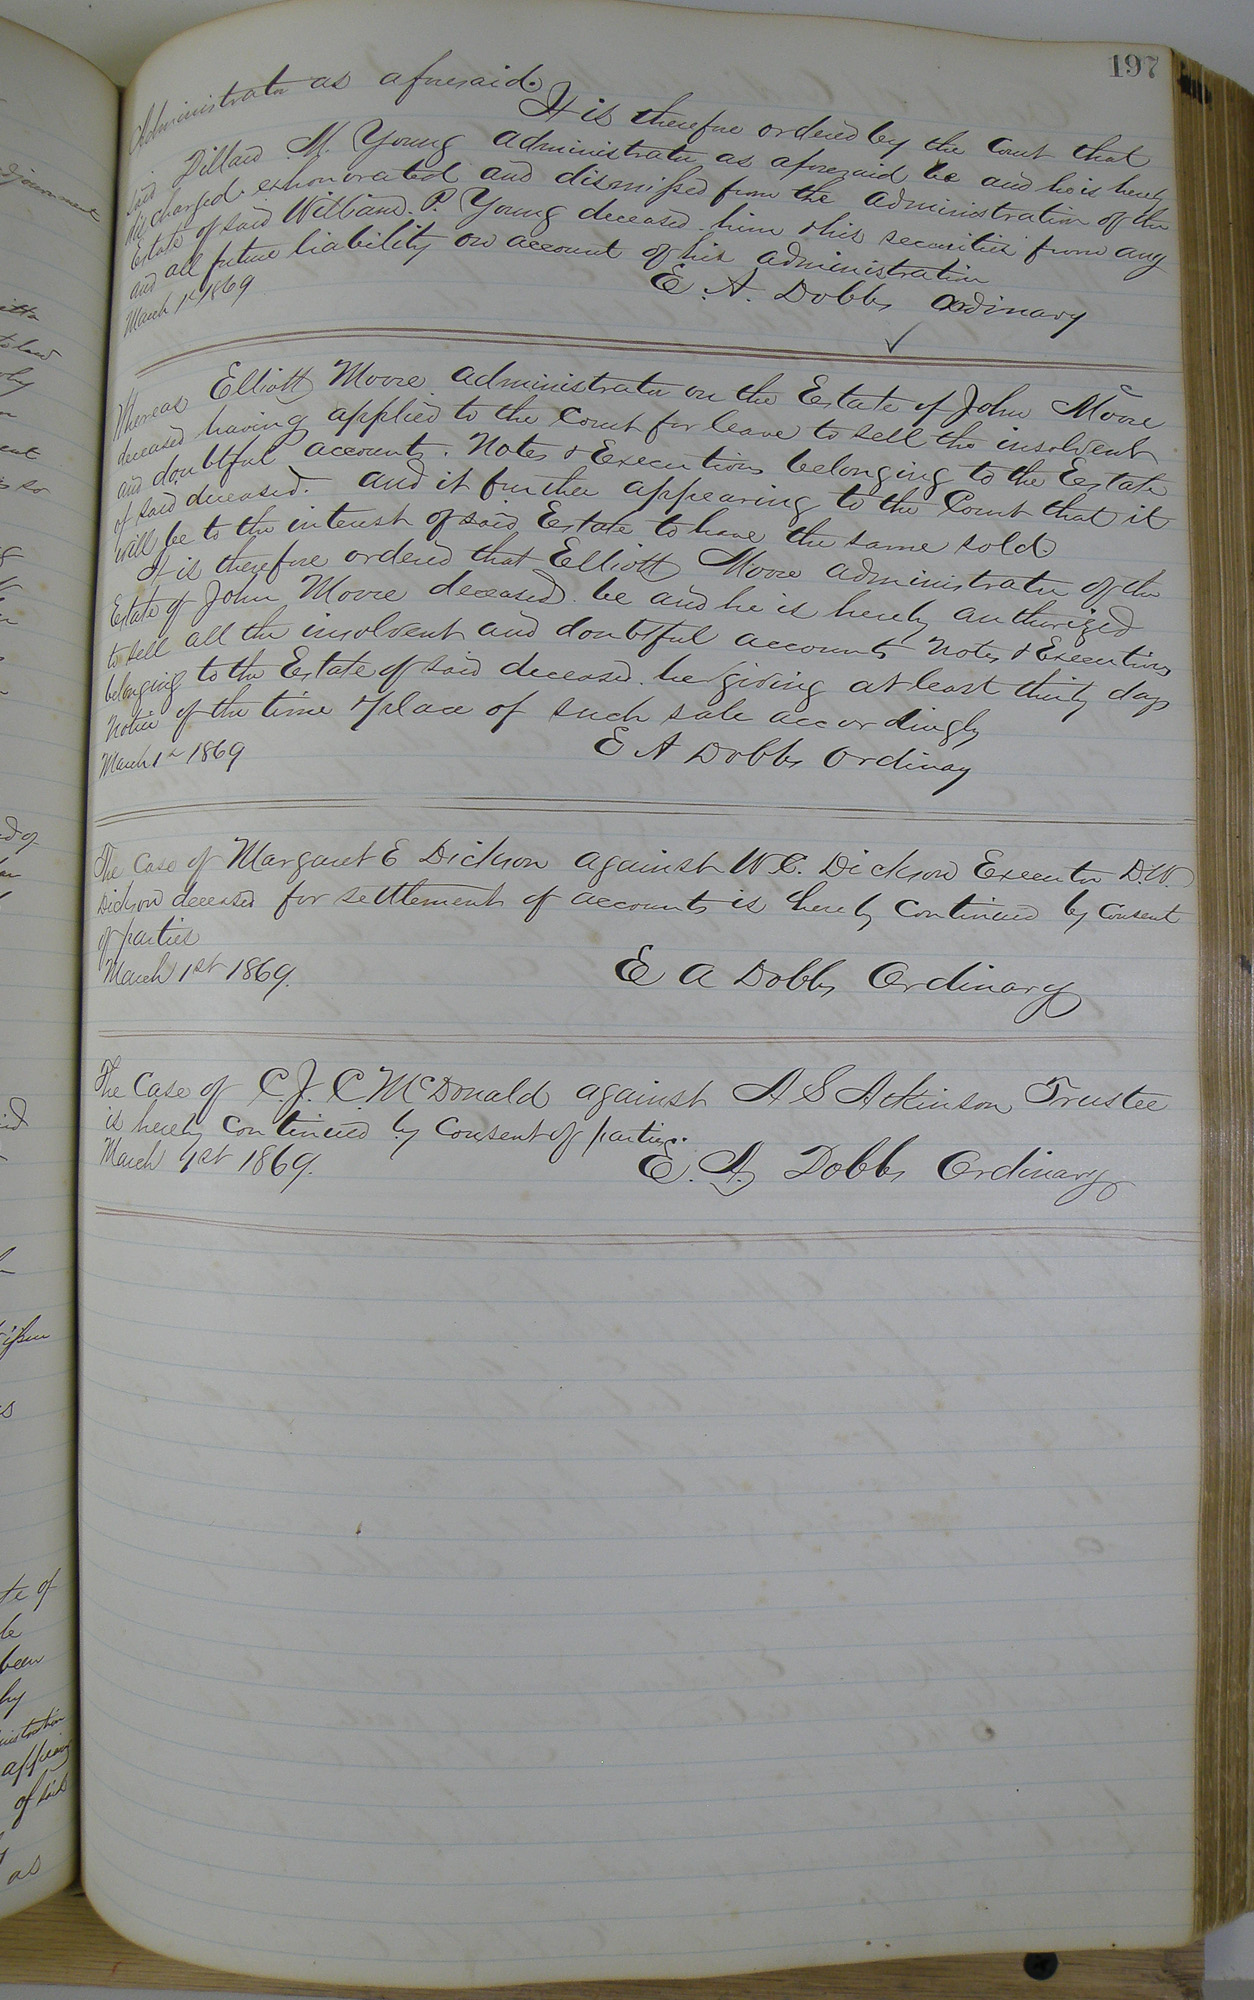 197
Administrator as aforesaid.
It is therefore ordered by the Court that
said Dillard M. Young administrator as aforesaid be and he is hereby
discharged exhonorated and dismissed from the administration of the
Estate of said William P. Young deceased him & his securities from any
and all future liability on account of his administration
March 1st 1869 E. A. Dobbs Ordinary
Whereas Elliott Moore administrator on the Estate of John Moore
deceased having applied to the Court for leave to sell the insolvent
and doubtful accounts. Notes & Executions belonging to the Estate
of said deceased. and it further appearing to the Court that it
will be to the interest of said Estate to have the same sold.
It is therefore ordered that Elliott Moore administrator of the
Estate of John Moore deceased. be and he is hereby authorized
to sell all the insolvent and doubtful accounts Notes & Executions
belonging to the Estate of said deceased. he giving at least thirty days
Notice of the time & place of such sale accordingly
March 1st 1869 E A Dobbs Ordinay
The Case of Margaret E Dickson against W. C. Dickson Executor D.W.
Dickson deceased for settlement of accounts is hereby continued by consent
of parties
March 1st 1869. E A Dobbs Ordinary
The Case of C. J. C. McDonald against A S Atkinson Trustee
is hereby continued by consent of parties.
March 1st 1869. E. A. Dobbs Ordinary